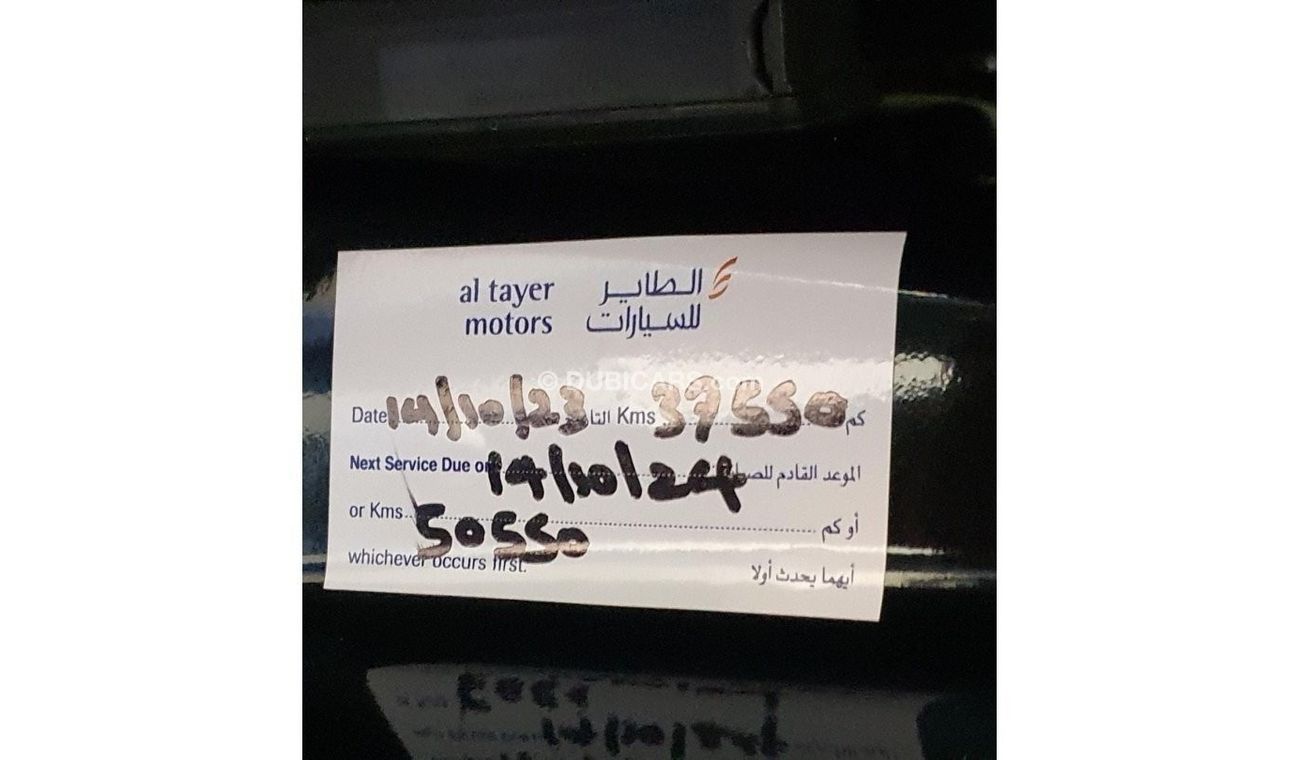 al tayer الطاير
motors للسيارات
© DUBICARS.com
Date 14/10/23 التاريخ Kms 37550 كم
Next Service Due on 14/10/24 الموعد القادم للصيانة
or Kms 50550 أو كم
whichever occurs first. أيهما يحدث أولا